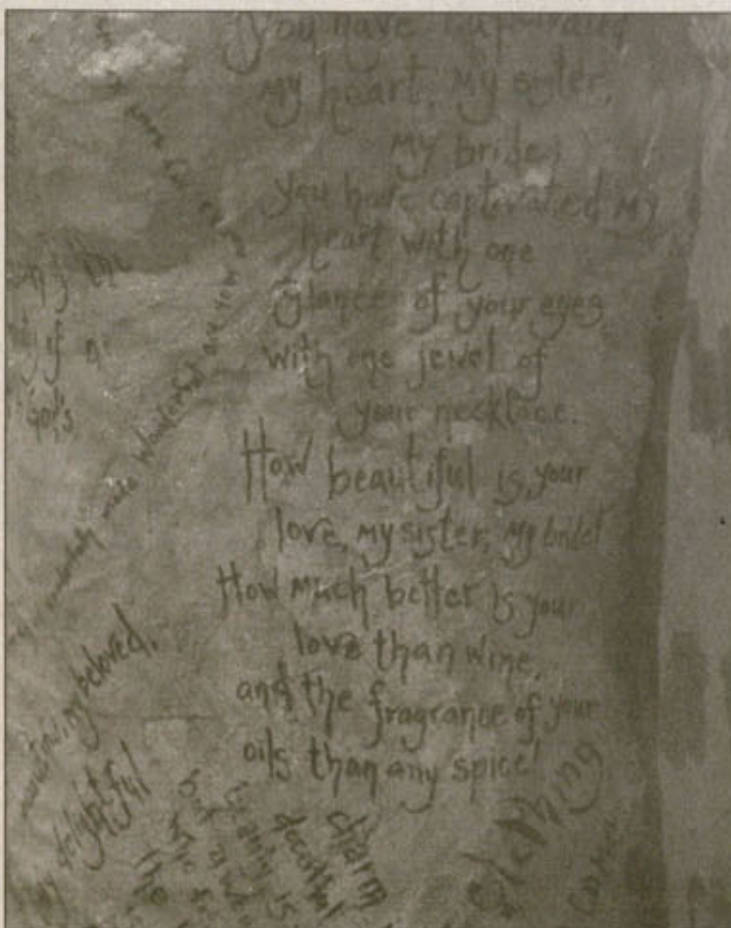 You have
my heart, my sister,
my bride;
you have captivated my
heart with one
glance of your eyes,
with one jewel of
your necklace.
How beautiful is your
love, my sister, my bride!
How much better is your
love than wine,
and the fragrance of your
oils than any spice!
the
if
God's
made wonderful are you
my beloved,
delightful
charm
deceitful
beauty is
but a
who
the
clothing